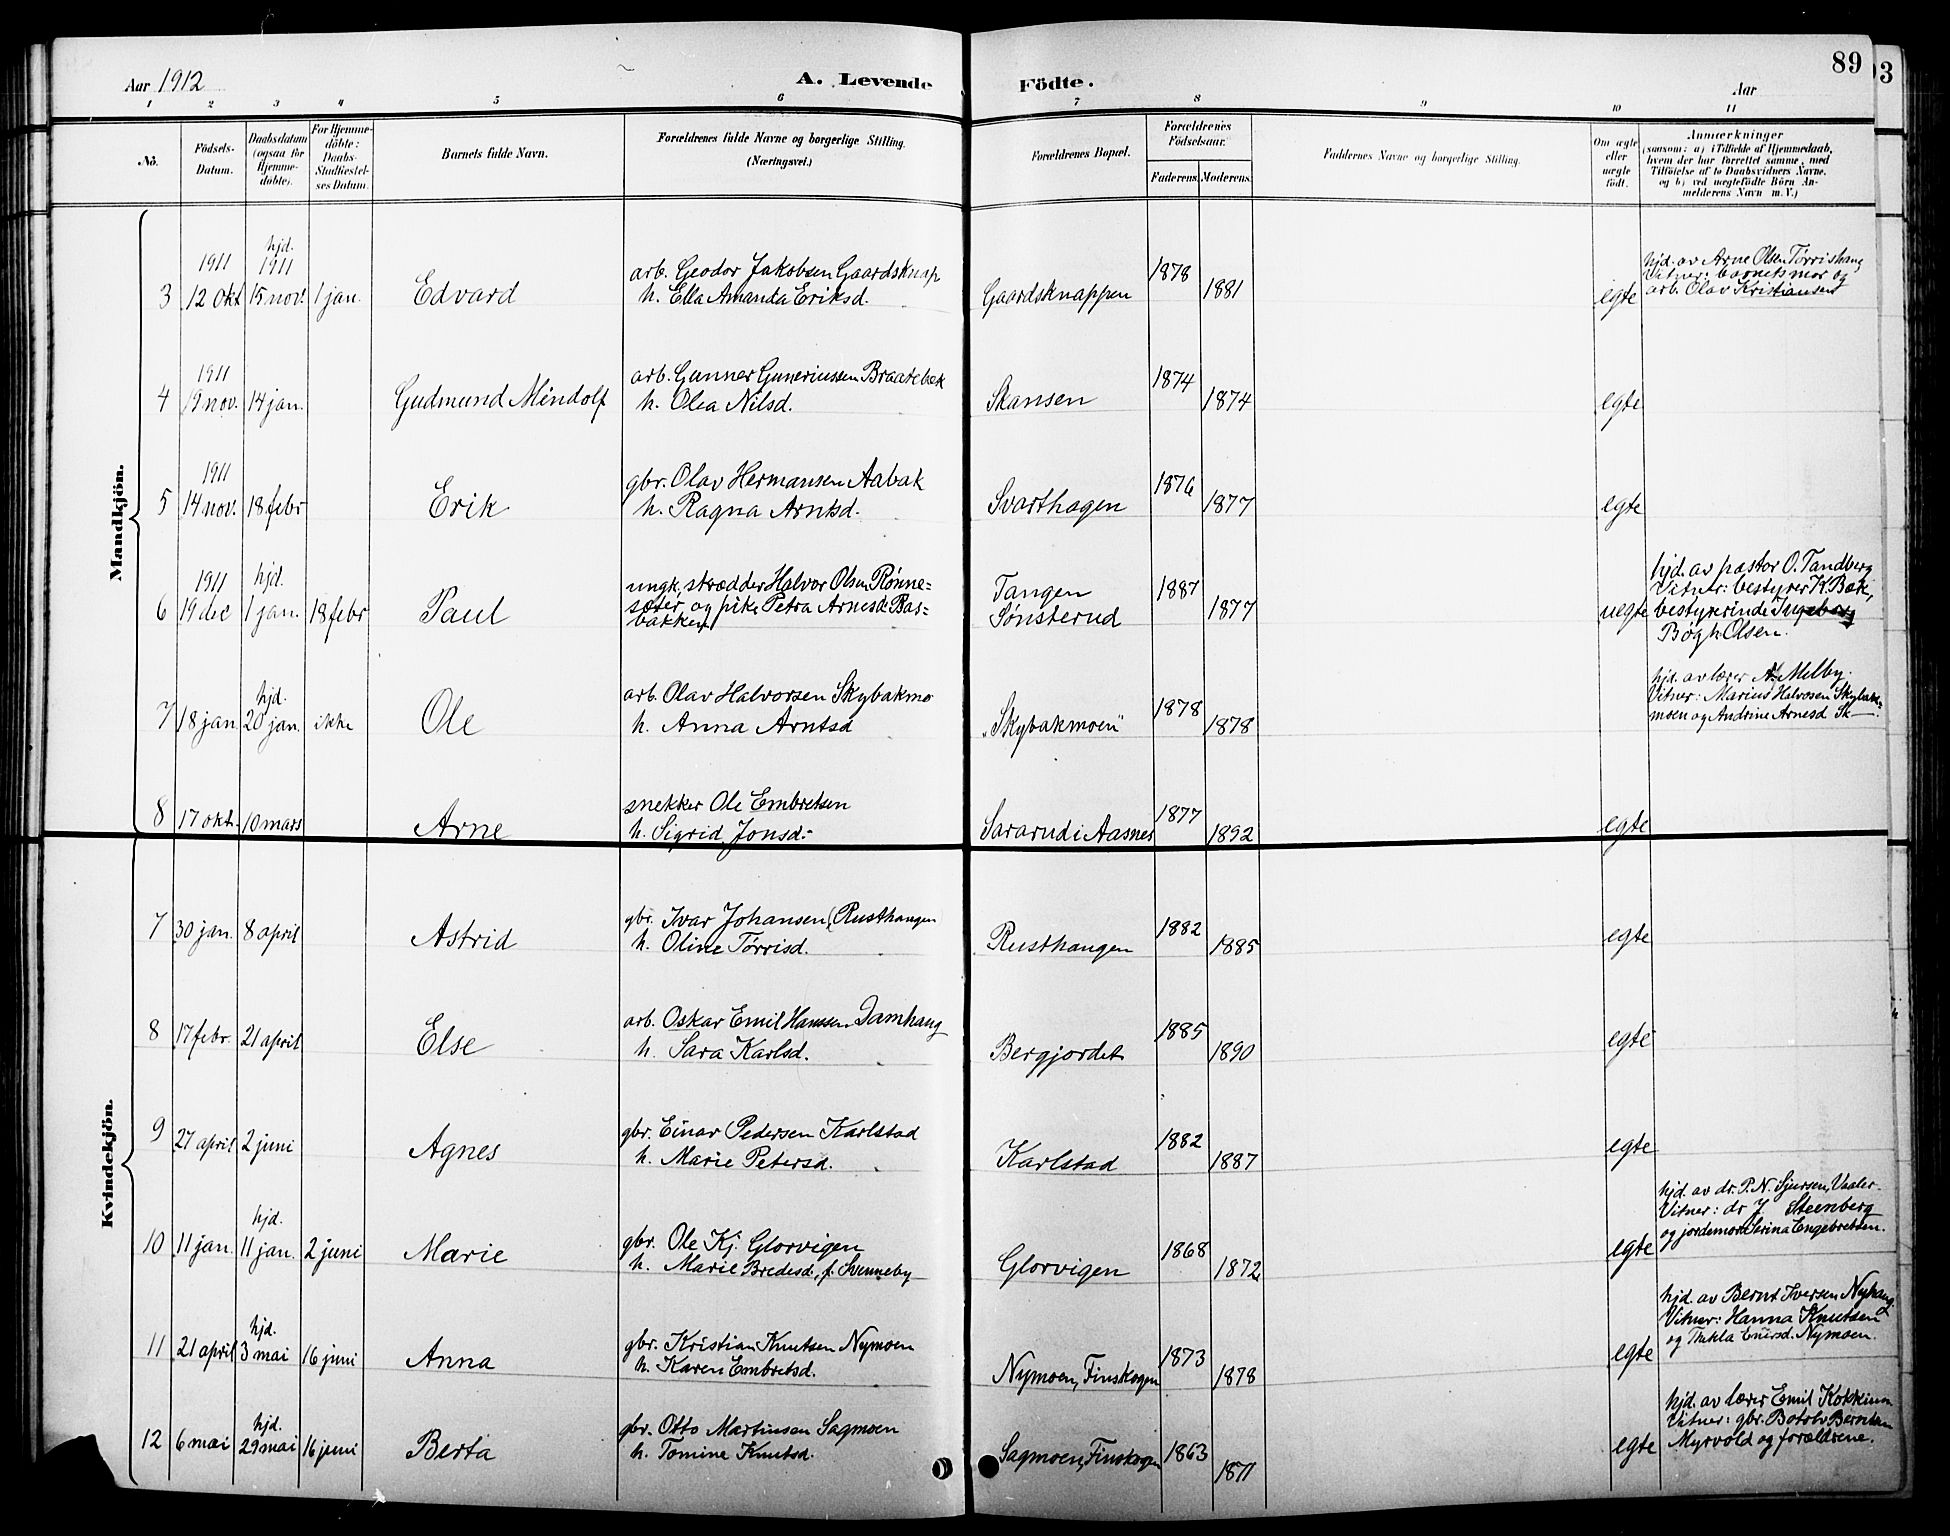 89
03
Aar 1912
A. Levende
Födte.
Aar
1 2 3 4 5 6 7 8 9 10 11
No.
Födsels-
Datum.
Daabsdatum
(ogsaa for
Hjemme-
döbte).
For Hjemme-
döbte:
Daabs-
Stadfæstel-
ses Datum.
Barnets fulde Navn.
Forældrenes fulde Navne og borgerlige Stilling.
(Næringsvei.)
Forældrenes Bopæl.
Forældrenes
Födselsaar.
Faderens. Moderens.
Faddernes Navne og borgerlige Stilling.
Om ægte
eller
uægte
födt.
Anmærkninger
(saasom: a) i Tilfælde af Hjemmedaab,
hvem der har forrettet samme, med
Tilföielse af to Daabsvidners Navne,
og b) ved uægtefödte Börn An-
melderens Navn m. V.)
Mandkjön.
3
1911
12 okt
hjd.
1911
15 nov.
1 jan.
Edvard
arb. Geodor Jakobsen Gaardsknap
h. Ella Amanda Eriksd.
Gaardsknappen
1878
1881
egte
hjd. av Arne Olsen Tørrishaug
Vitner: barnets mor og
arb. Olav Kristiansen
4
1911
19 nov.
14 jan.
Gudmund Mindolf
arb. Gunner Guneriussen Braatebæk
h. Olea Nilsd.
Skansen
1874
1874
egte
5
1911
14 nov.
18 febr
Erik
gbr. Olav Hermansen Aabak
h. Ragna Arntsd.
Svarthagen
1876
1877
egte
6
1911
19 dec
hjd.
1 jan.
18 febr
Paul
ungk. skrædder Halvor Olsen Rønne=
sæter, og pike Petra Arnesd. Bas=
bakken
Tangen
Sønsterud
1887
1877
uegte
hjd. av pastor O. Tandberg
Vitner: bestyrer K. Bæk,
bestyrerinde Ingeborg
Bøgh Olsen.
7
18 jan.
hjd.
20 jan.
ikke
Ole
arb. Olav Halvorsen Skybakmo
h. Anna Arntsd
"Skybakmoen"
1878
1878
hjd. av lærer N. Melby.
Vitner: Marius Halvosen Skybak=
moen og Andrine Arnesd Sk—.
8
17 okt.
10 mars
Arne
snekker Ole Embretsen
h. Sigrid Jonsd.
Sararud i Aasnes
1877
1892
egte
Kvindekjön.
7
30 jan.
8 april
Astrid
gbr. Ivar Johansen (Rusthaugen)
h. Oline Tørrisd.
Rusthaugen
1882
1885
egte
8
17 febr.
21 april
Else
arb. Oskar Emil Hanssen Damhaug
h. Sara Karlsd.
Bergjordet
1885
1890
egte
9
27 april
2 juni
Agnes
gbr. Einar Pedersen Karlstad
h. Marie Petersd.
Karlstad
1882
1887
egte
10
11 jan.
hjd.
11 jan.
2 juni
Marie
gbr. Ole Kj. Glorvigen
h. Marie Bredesd., f. Svenneby
Glorvigen
1868
1872
egte
hjd. av dr. P. N. Sjursen, Vaaler.
Vitner: dr J Steenberg
og jordemor Serina Engebretsen.
11
21 april
hjd.
3 mai
16 juni
Anna
gbr. Kristian Knutsen Nymoen
h. Karen Embretsd.
Nymoen, Finskogen
1873
1878
egte
hjd. av Bernt Iversen Nyhaug
Vitner: Hanna Knutsen
og Thekla Einersd. Nymoen.
12
6 mai
hjd.
29 mai
16 juni
Berta
gbr. Otto Martinsen Sagmoen
h. Tomine Knutsd.
Sagmoen, Finskogen
1863
1871
egte
hjd. av lærer Emil Kokkinn
Vitner: gbr. Botolv Berntsen
Myrvold og forældrene.